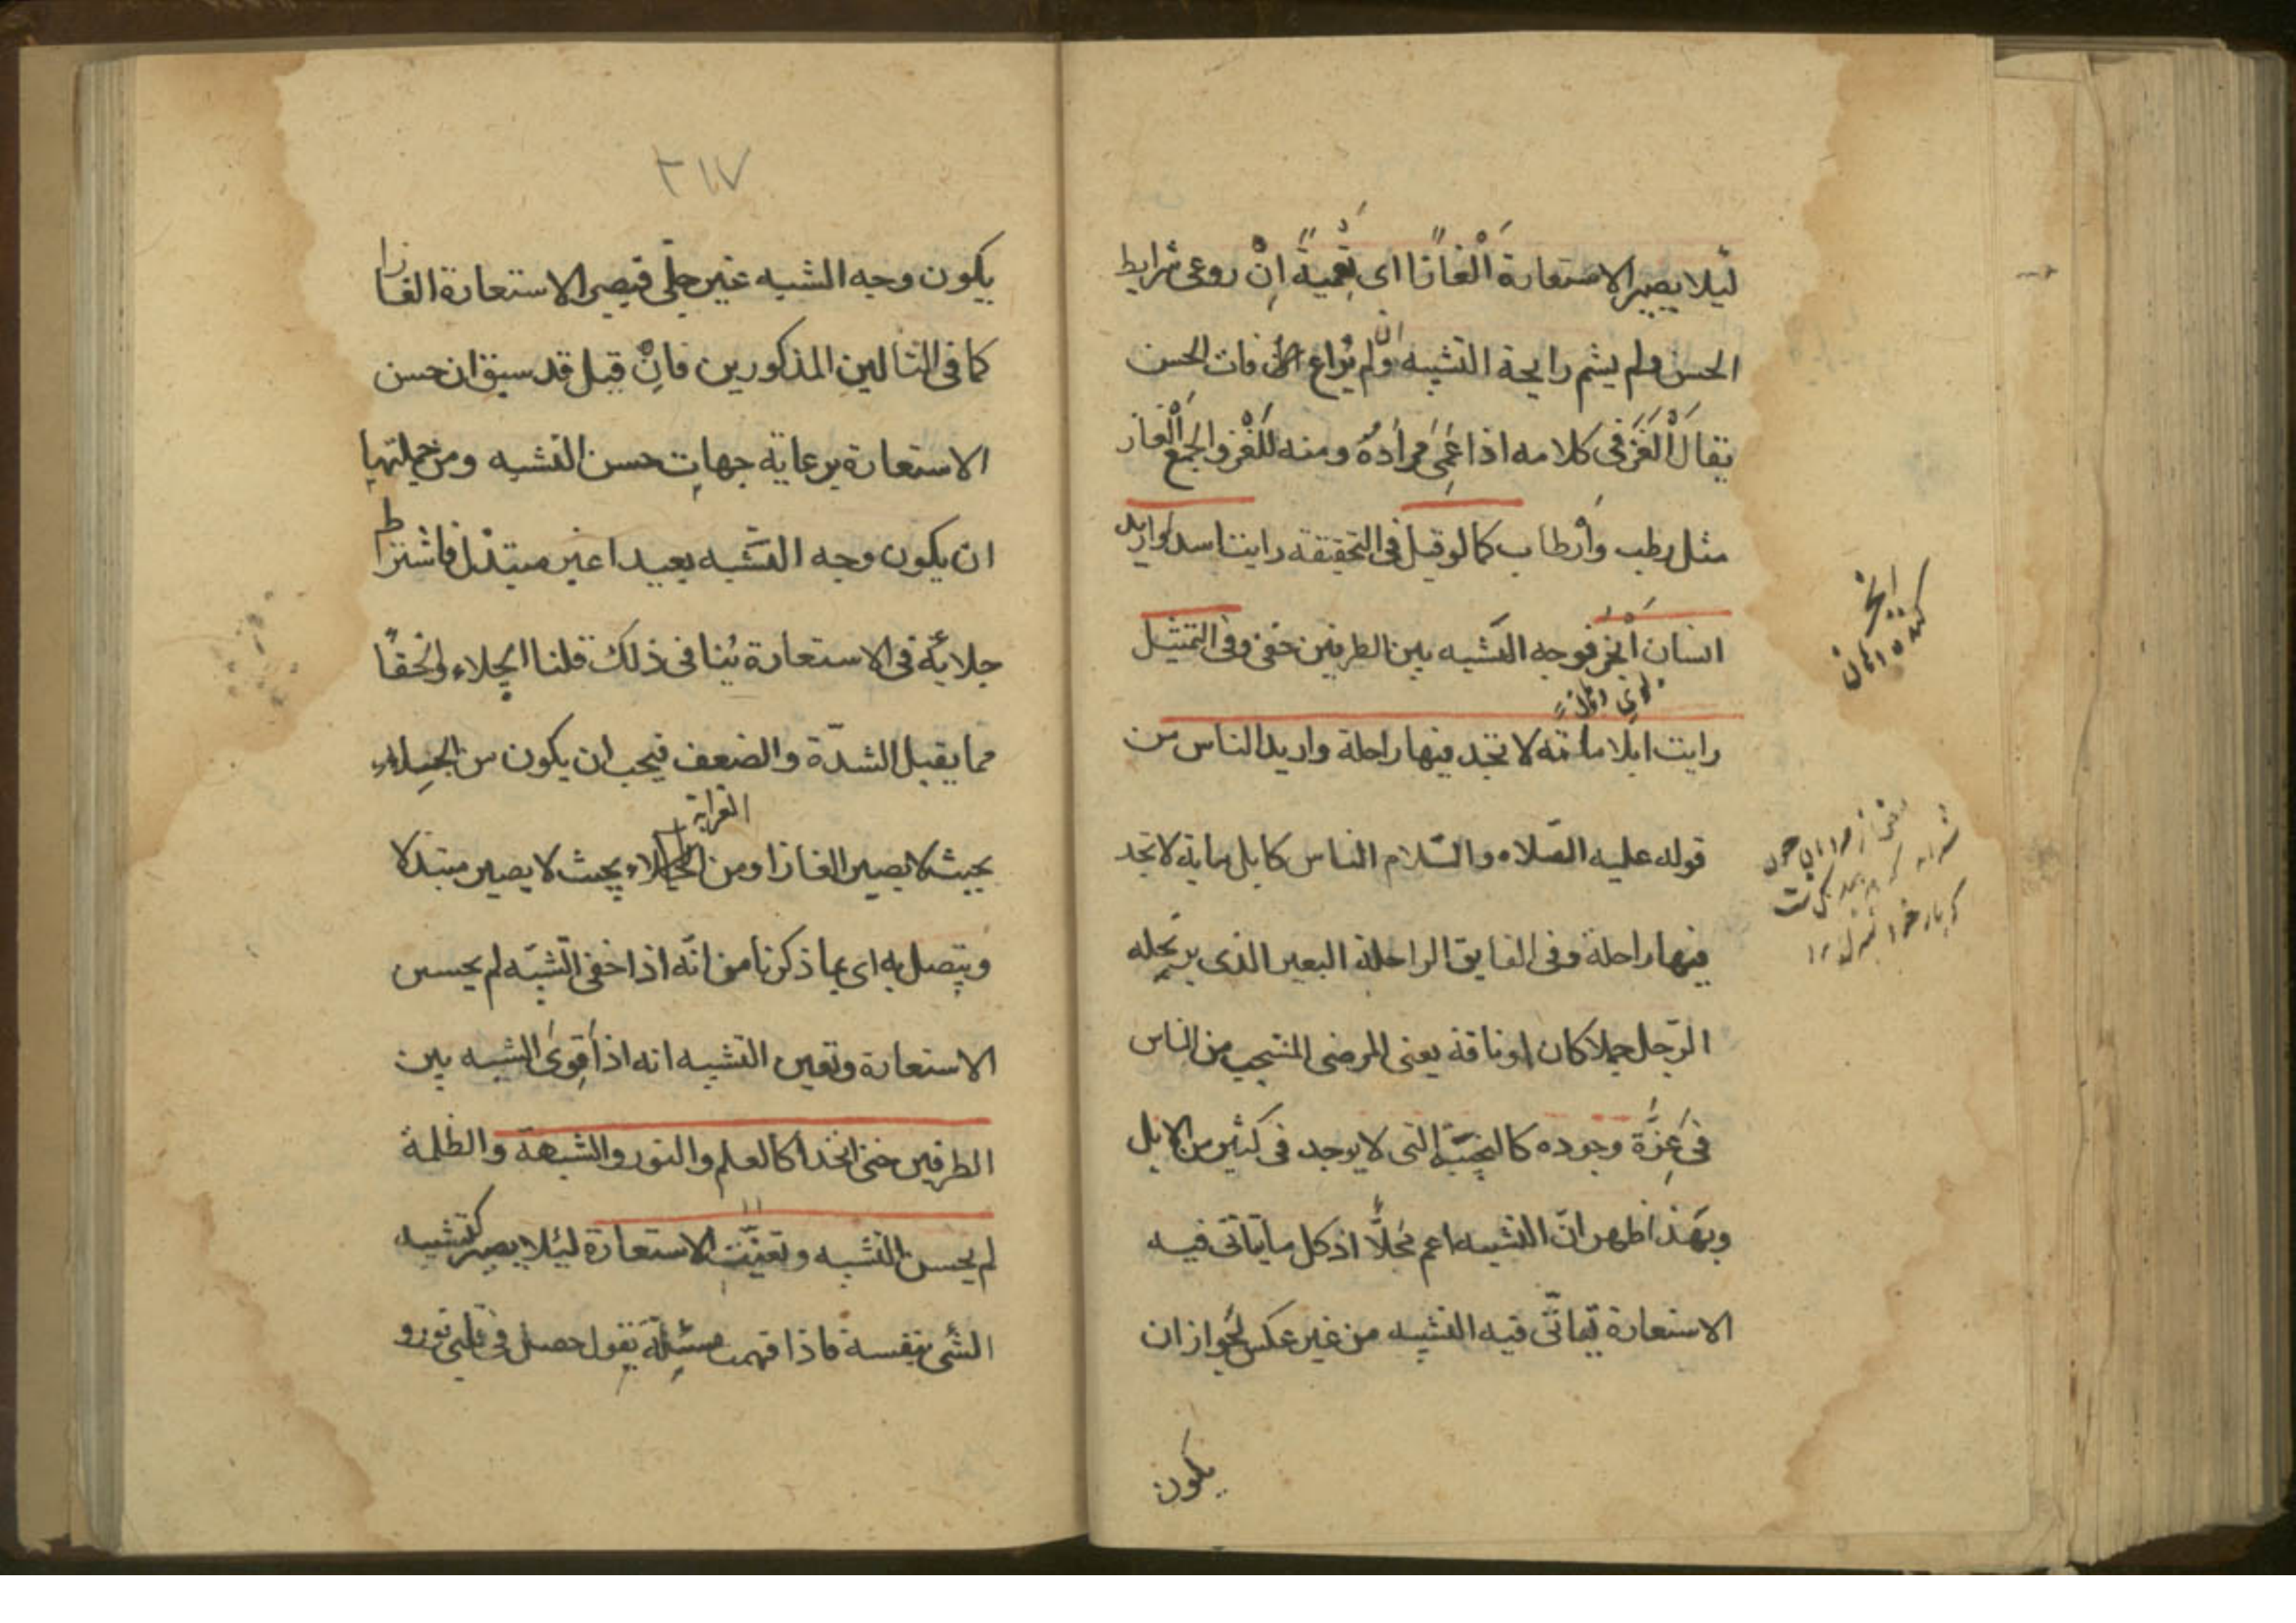 ليلا يصير الاستعارة اَلْغازًا اى تَعْميةً اِنْ روعى شرايط
الحسن ولم يشم رايحة التشبيه وان لم يُراع فات الحسن
يقال اَلْغَزَ فى كلامه اذا عَمّى مُرادَهُ ومنه اللُّغْز والجمع اَلْغاز
مثل رطب واَرْطاب كما لو قيل فى التحقيقة رايت اسدا واريد
انسان اَبْخَر فوجه الشَبه بين الطرفين خفى وفى التمثيل
رايت ابلا مائه لا تجد فيها راحلة واريد الناس من
قوله عليه الصّلاه والسّلام الناس كابل مايه لا تجد
فيها راحلة وفى الفايق الراحلة البعير الذى يرتحله
الرّجل جملا كان او ناقة يعنى المرضى المنتجب من الناس
فى عِزَّة وجوده كالنجيبة التى لا يوجد فى كثير من الابل
وبهذا ظهر انّ التشبيه اعم مَحَلًّا اذ كل ما يتاتى فيه
الاستعارة يتاتّى فيه التشبيه من غير عكس لجواز ان
يكون
٣١٧
يكون وجه الشبه غير جلّى فيصير الاستعارة الغازا
كما فى المثالين المذكورين فاِنْ قيل قد سبق ان حسن
الاستعارة برعاية جهات حسن التشبيه ومن جملتها
ان يكون وجه الشَبه بعيدا غير مبتذل فاشتراط
جلائه فى الاستعارة يُنافى ذلك قلنا الجلاء والخفا
مما يقبل الشدّة والضعف فيجب ان يكون من الجلاء
بحيث لا يصير الغازا ومن الغرابة بحيث لا يصير مبتذلا
ويتصل به اى بما ذكرنا من انّه اذا خفى الشبه لم يحسن
الاستعارة وتعين التشبيه انه اذا قوى الشبه بين
الطرفين حتى اتحدا كالعلم والنور والشبهة والظلمة
لم يحسن التشبيه وتعيّنت الاستعارة ليئلا يصير كتشبيه
الشى بنفسه فاذا فهمت مسئلة يقول حصل فى قلبى نور و